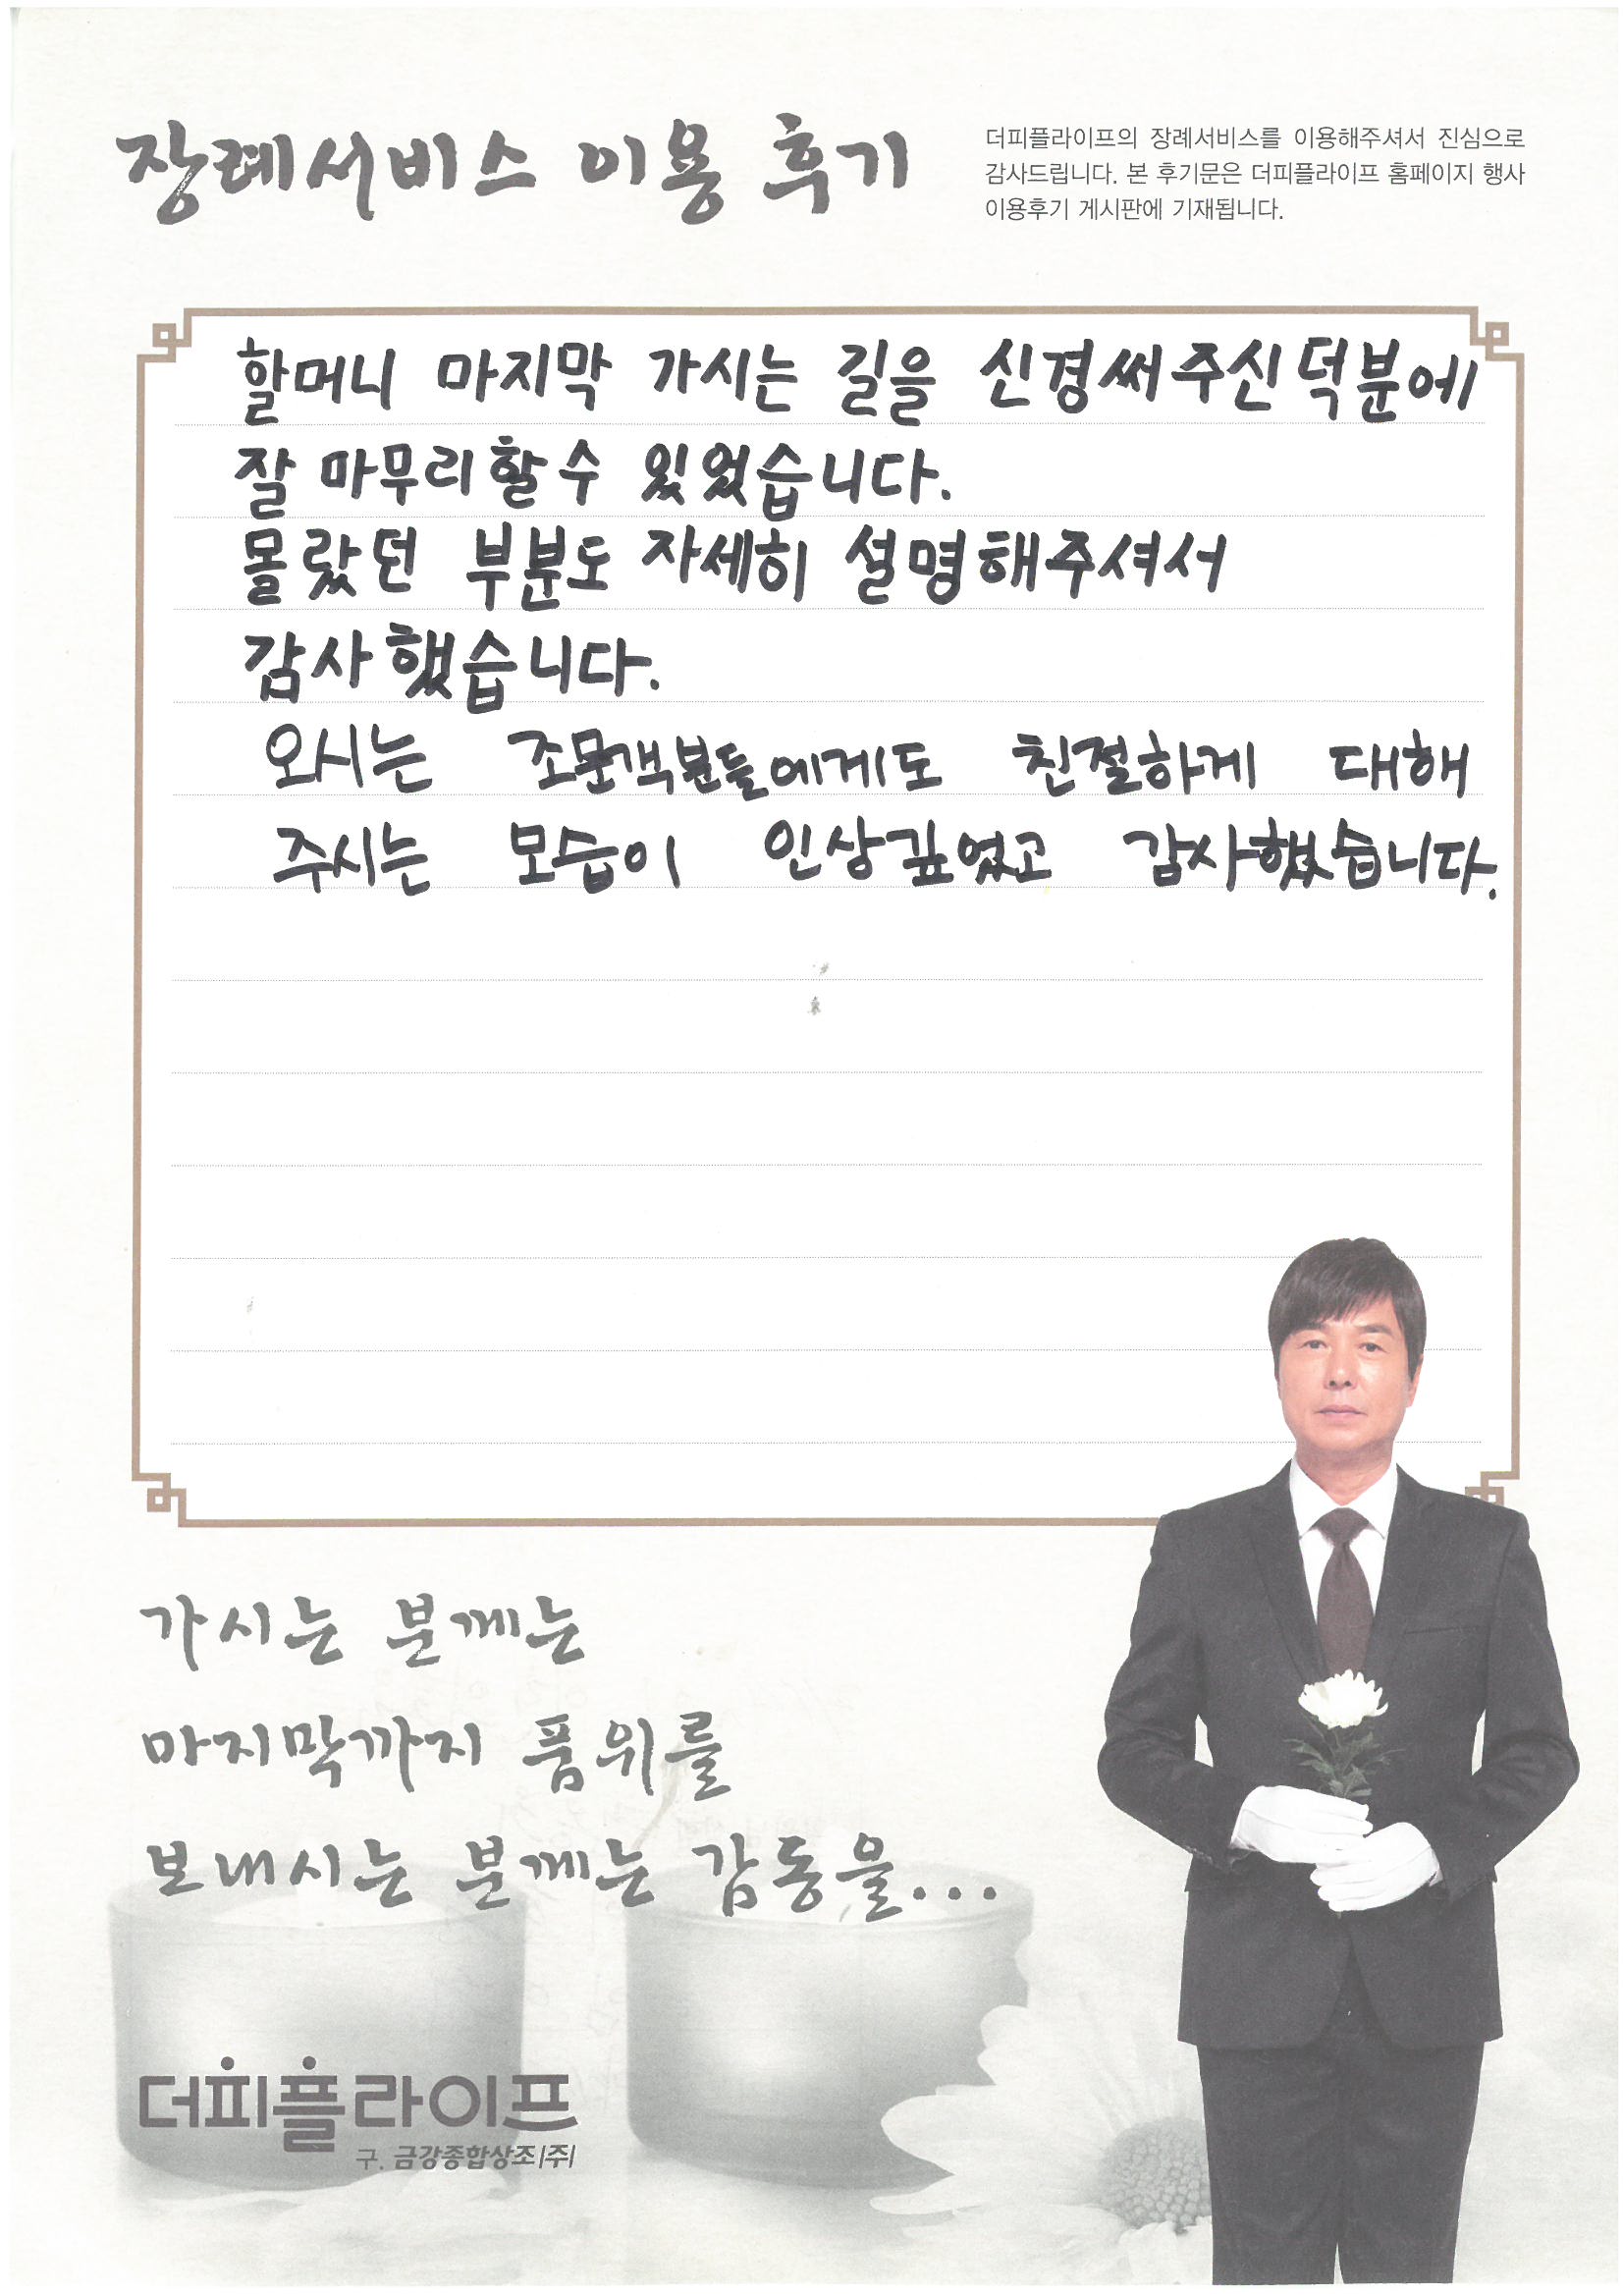 장례서비스 이용 후기
더피플라이프의 장례서비스를 이용해주셔서 진심으로
감사드립니다. 본 후기문은 더피플라이프 홈페이지 행사
이용후기 게시판에 기재됩니다.
할머니 마지막 가시는 길을 신경써주신덕분에
잘 마무리할수 있었습니다.
몰랐던 부분도 자세히 설명해주셔서
감사했습니다.
오시는 조문객분들에게도 친절하게 대해
주시는 모습이 인상깊었고 감사했습니다.
가시는 분께는
마지막까지 품위를
보내시는 분께는 감동을...
더피플라이프
구. 금강종합상조|주|